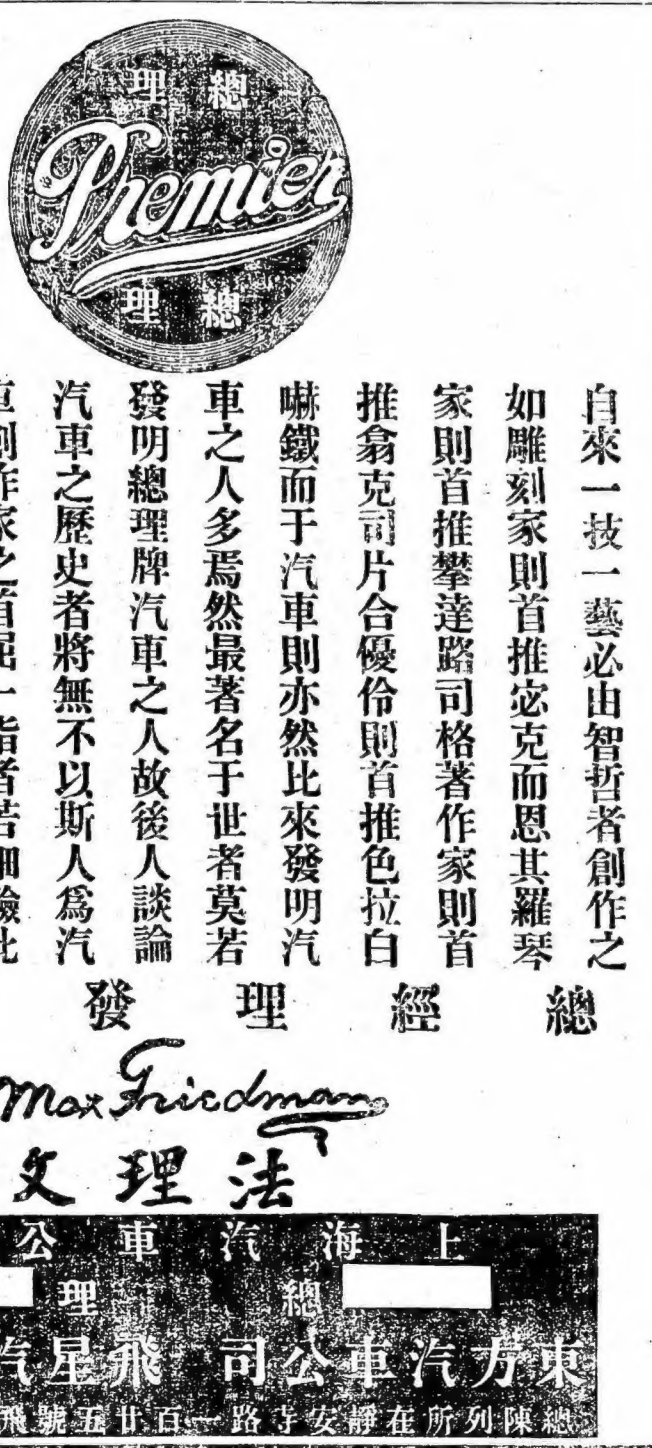 總理
Premier
總理
自來一技一藝必由智哲者創作之
如雕刻家則首推宓克而恩其羅琴
家則首推攀達路司格著作家則首
推翕克司片合優伶則首推色拉白
嚇鐵而于汽車則亦然比來發明汽
車之人多焉然最著名于世者莫若
發明總理牌汽車之人故後人談論
汽車之歷史者將無不以斯人爲汽
車創作家之首屈一指者若細驗此
總經理發
Max Friedman
法理文
上海汽車公
總理
東方汽車公司 飛星汽
總陳列所在靜安寺路一百廿五號飛